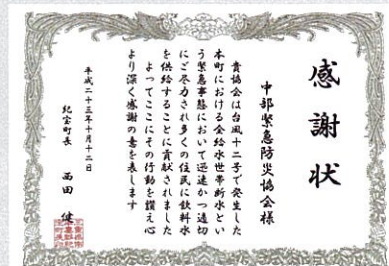 感謝状
中部緊急防災協会様
貴協会は台風十二号で発生した
本町における全給水世帯断水とい
う緊急事態において迅速かつ適切
にご尽力され多くの住民に飲料水
を供給することに貢献されました
よってここにその行動を讃え心
より深く感謝の意を表します
平成二十三年十月十二日
紀宝町長 西田 健